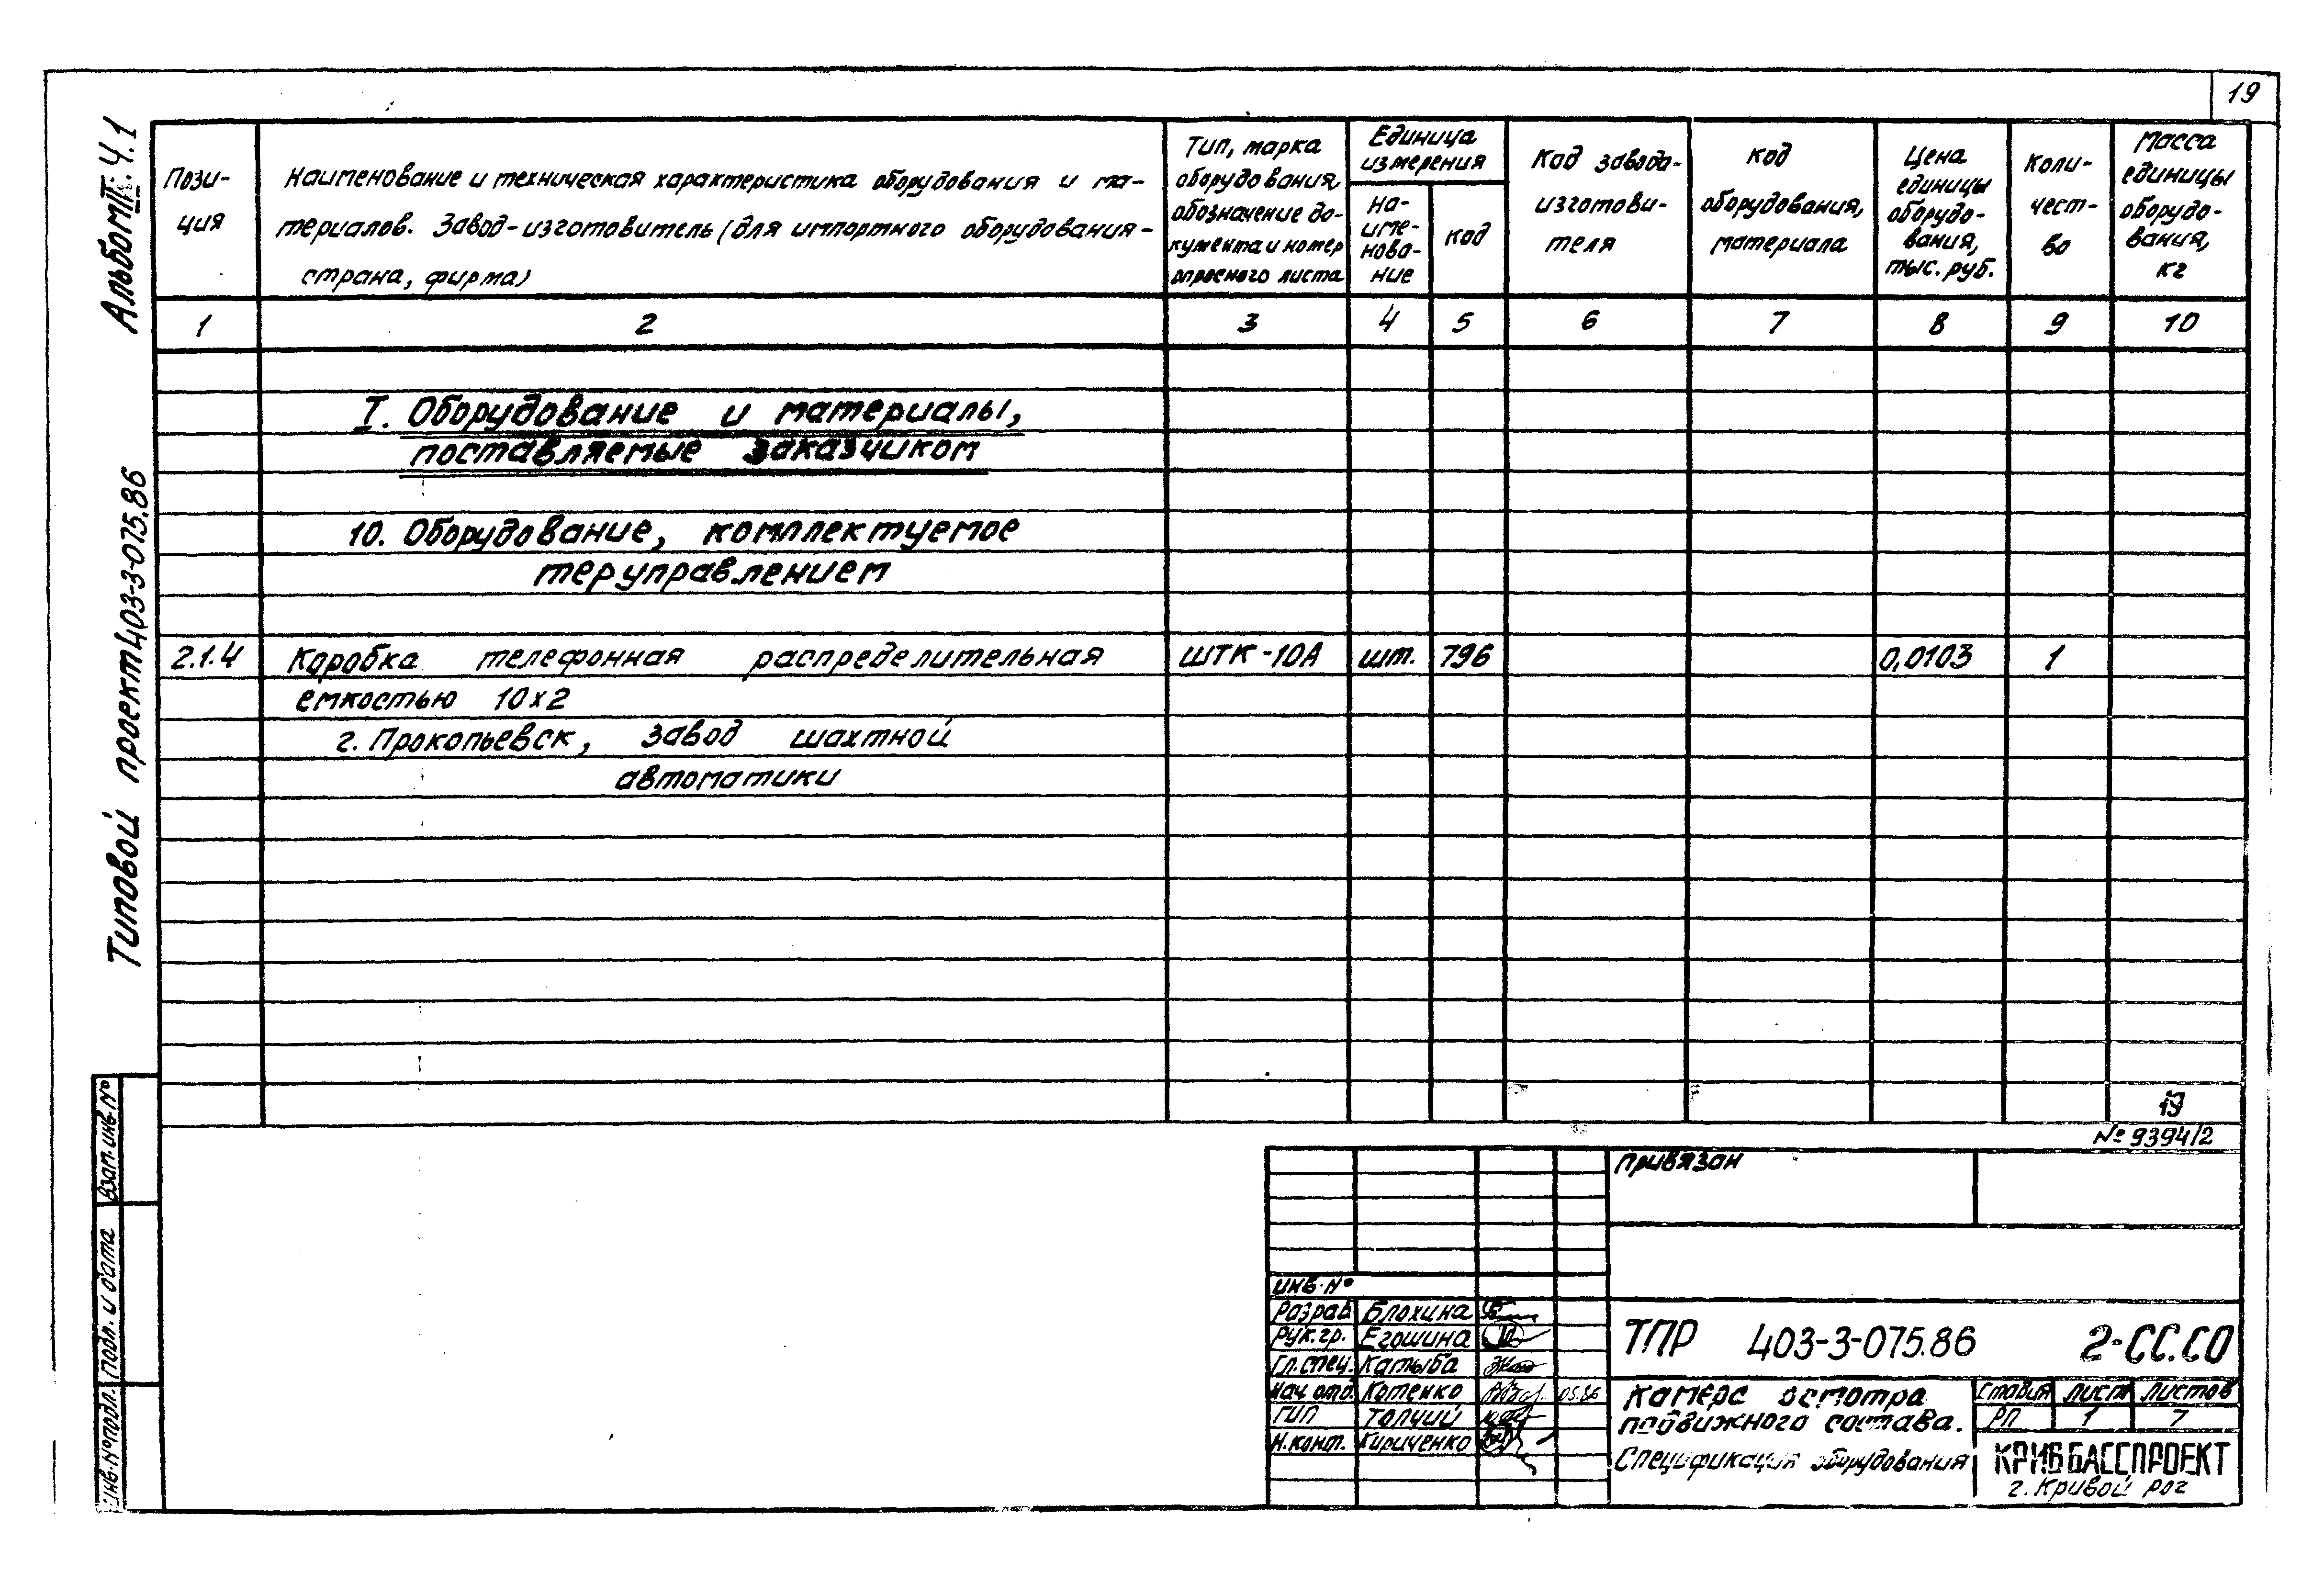 19
Альбом III. Ч.1
Типовой проект 403-3-075.86
Пози-
ция
Наименование и техническая характеристика оборудования и ма-
териалов. Завод-изготовитель (для импортного оборудования -
страна, фирма)
Тип, марка
оборудования,
обозначение до-
кумента и номер
опросного листа
Единица
измерения
На-
име-
нова-
ние
код
Код завода-
изготови-
теля
Код
оборудования,
материала
Цена
единицы
оборудо-
вания,
тыс. руб.
Коли-
чест-
во
Масса
единицы
оборудо-
вания,
кг
1 2 3 4 5 6 7 8 9 10
I. Оборудование и материалы,
поставляемые заказчиком
10. Оборудование, комплектуемое
теруправлением
2.1.4 Коробка телефонная распределительная ШТК-10А шт. 796 0,0103 1
емкостью 10х2
г. Прокопьевск, завод шахтной
автоматики
19
№ 9394/2
Привязан
инв. №
Разраб. Блохина
Рук. гр. Егошина
Гл. спец. Катыба
Нач. отд. Котенко 05.86
ГИП Толчий
Н. конт. Кириченко
ТПР 403-3-075.86 2-СС.СО
Камера осмотра
подвижного состава.
Спецификация оборудования
Стадия Лист Листов
РП 1 7
КРИВБАССПРОЕКТ
г. Кривой рог
Взам. инв. №
Подп. и дата
Инв. № подл.